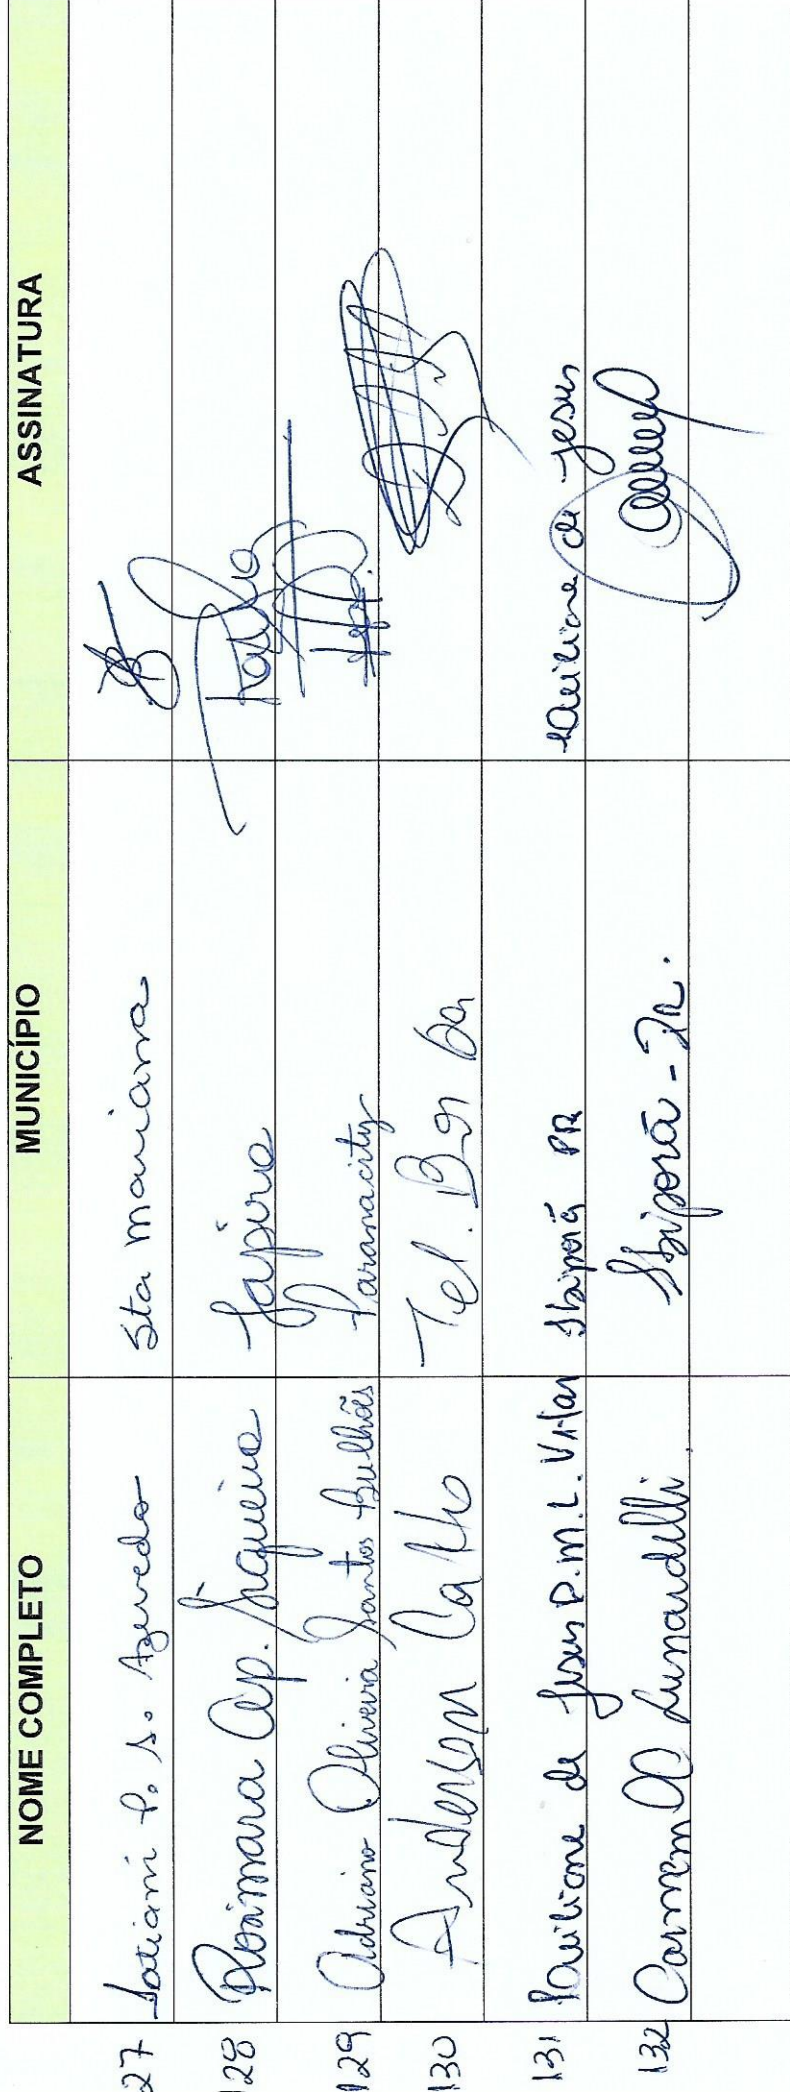 NOME COMPLETO MUNICÍPIO ASSINATURA
27 Tatiani P. S. Azevedo Sta Mariana
128 Rosimara Ap. Siqueira Japira
129 Adriano Oliveira Santos Bulhões Paranacity
130 Anderson Tel. Borba
131 de Jesus P.M.L. Vilar Ibiporã PR de Jesus
132 Carmem Lunardelli Ibiporã - PR.